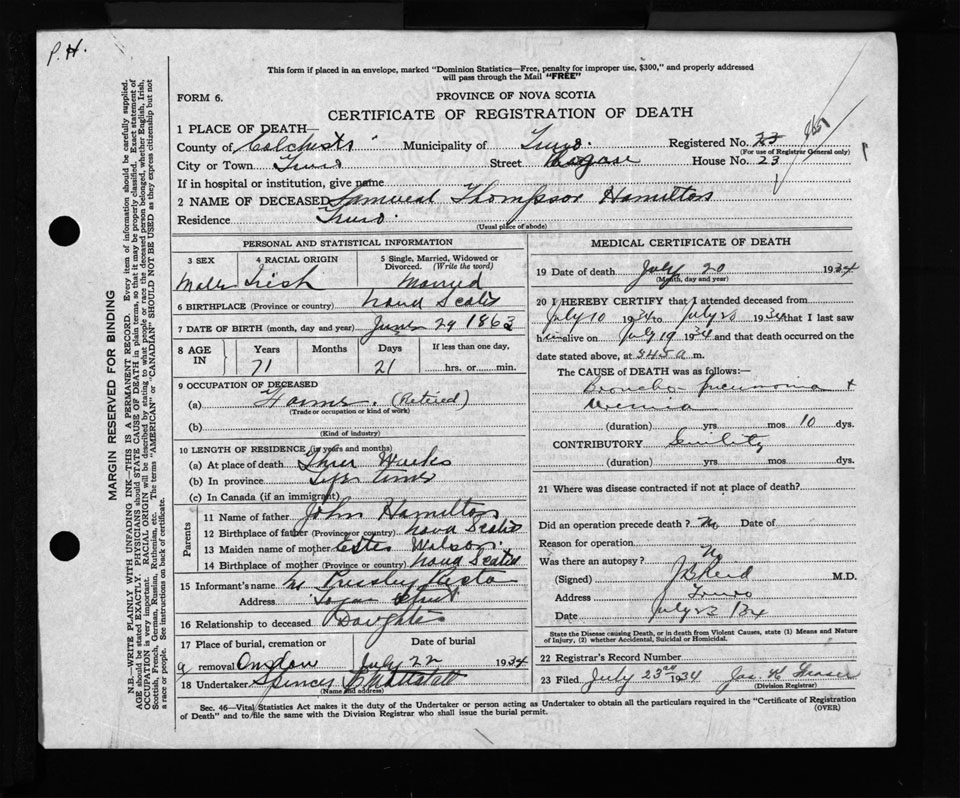 P.H.
This form if placed in an envelope, marked "Dominion Statistics—Free, penalty for improper use, $300," and properly addressed
will pass through the Mail "FREE"
FORM 6.
PROVINCE OF NOVA SCOTIA
CERTIFICATE OF REGISTRATION OF DEATH
1 PLACE OF DEATH—
County of Colchester Municipality of Truro. Registered No.
(For use of Registrar General only)
City or Town Truro Street Logan House No. 23
If in hospital or institution, give name
2 NAME OF DECEASED Samuel Thompson Hamilton
Residence Truro.
(Usual place of abode)
PERSONAL AND STATISTICAL INFORMATION
3 SEX 4 RACIAL ORIGIN 5 Single, Married, Widowed or Divorced. (Write the word)
Male Irish Married
6 BIRTHPLACE (Province or country) Nova Scotia
7 DATE OF BIRTH (month, day and year) June 29 1863
8 AGE IN Years Months Days If less than one day,
71 21 ...hrs. or......min.
9 OCCUPATION OF DECEASED
(a) Farmer. (Retired)
(Trade or occupation or kind of work)
(b)
(Kind of industry)
10 LENGTH OF RESIDENCE (in years and months)
(a) At place of death Three Weeks
(b) In province Life time
(c) In Canada (if an immigrant)
Parents
11 Name of father John Hamilton
12 Birthplace of father (Province or country) Nova Scotia
13 Maiden name of mother Wilson.
14 Birthplace of mother (Province or country) Nova Scotia
15 Informant's name Presley
Address Logan Street
16 Relationship to deceased Daughter
17 Place of burial, cremation or removal Onslow Date of burial July 22 1934
18 Undertaker Spencer
(Name and address)
MEDICAL CERTIFICATE OF DEATH
19 Date of death July 20 1934
(Month, day and year)
20 I HEREBY CERTIFY that I attended deceased from
July 10 1934 to July 20 1934 that I last saw
him alive on July 19 1934 and that death occurred on the
date stated above, at 345 a m.
The CAUSE OF DEATH was as follows:—
Broncho pneumonia +
Uremia
(duration) yrs mos 10 dys.
CONTRIBUTORY Senility
(duration) yrs mos dys.
21 Where was disease contracted if not at place of death?
Did an operation precede death? No Date of
Reason for operation
Was there an autopsy? No
(Signed) J B Reid M.D.
Address Truro
Date July 23/34
State the Disease causing Death, or in death from Violent Causes, state (1) Means and Nature
of Injury, (2) whether Accidental, Suicidal or Homicidal.
22 Registrar's Record Number
23 Filed July 23rd 1934 Jas. H. Fraser
(Division Registrar)
Sec. 46—Vital Statistics Act makes it the duty of the Undertaker or person acting as Undertaker to obtain all the particulars required in the "Certificate of Registration
of Death" and to file the same with the Division Registrar who shall issue the burial permit.
(OVER)
MARGIN RESERVED FOR BINDING
N.B.—WRITE PLAINLY WITH UNFADING INK—THIS IS A PERMANENT RECORD. Every item of information should be carefully supplied.
AGE should be stated EXACTLY. PHYSICIANS should STATE CAUSE OF DEATH in plain terms, so that it may be properly classified. Exact statement of
OCCUPATION is very important. RACIAL ORIGIN will be described by stating to what people or race the deceased person belonged, whether English, Irish,
Scottish, French, German, Russian, Ruthenian, etc. The terms "AMERICAN" or "CANADIAN" SHOULD NOT BE USED as they express citizenship but not
a race or people. See instructions on back of certificate.